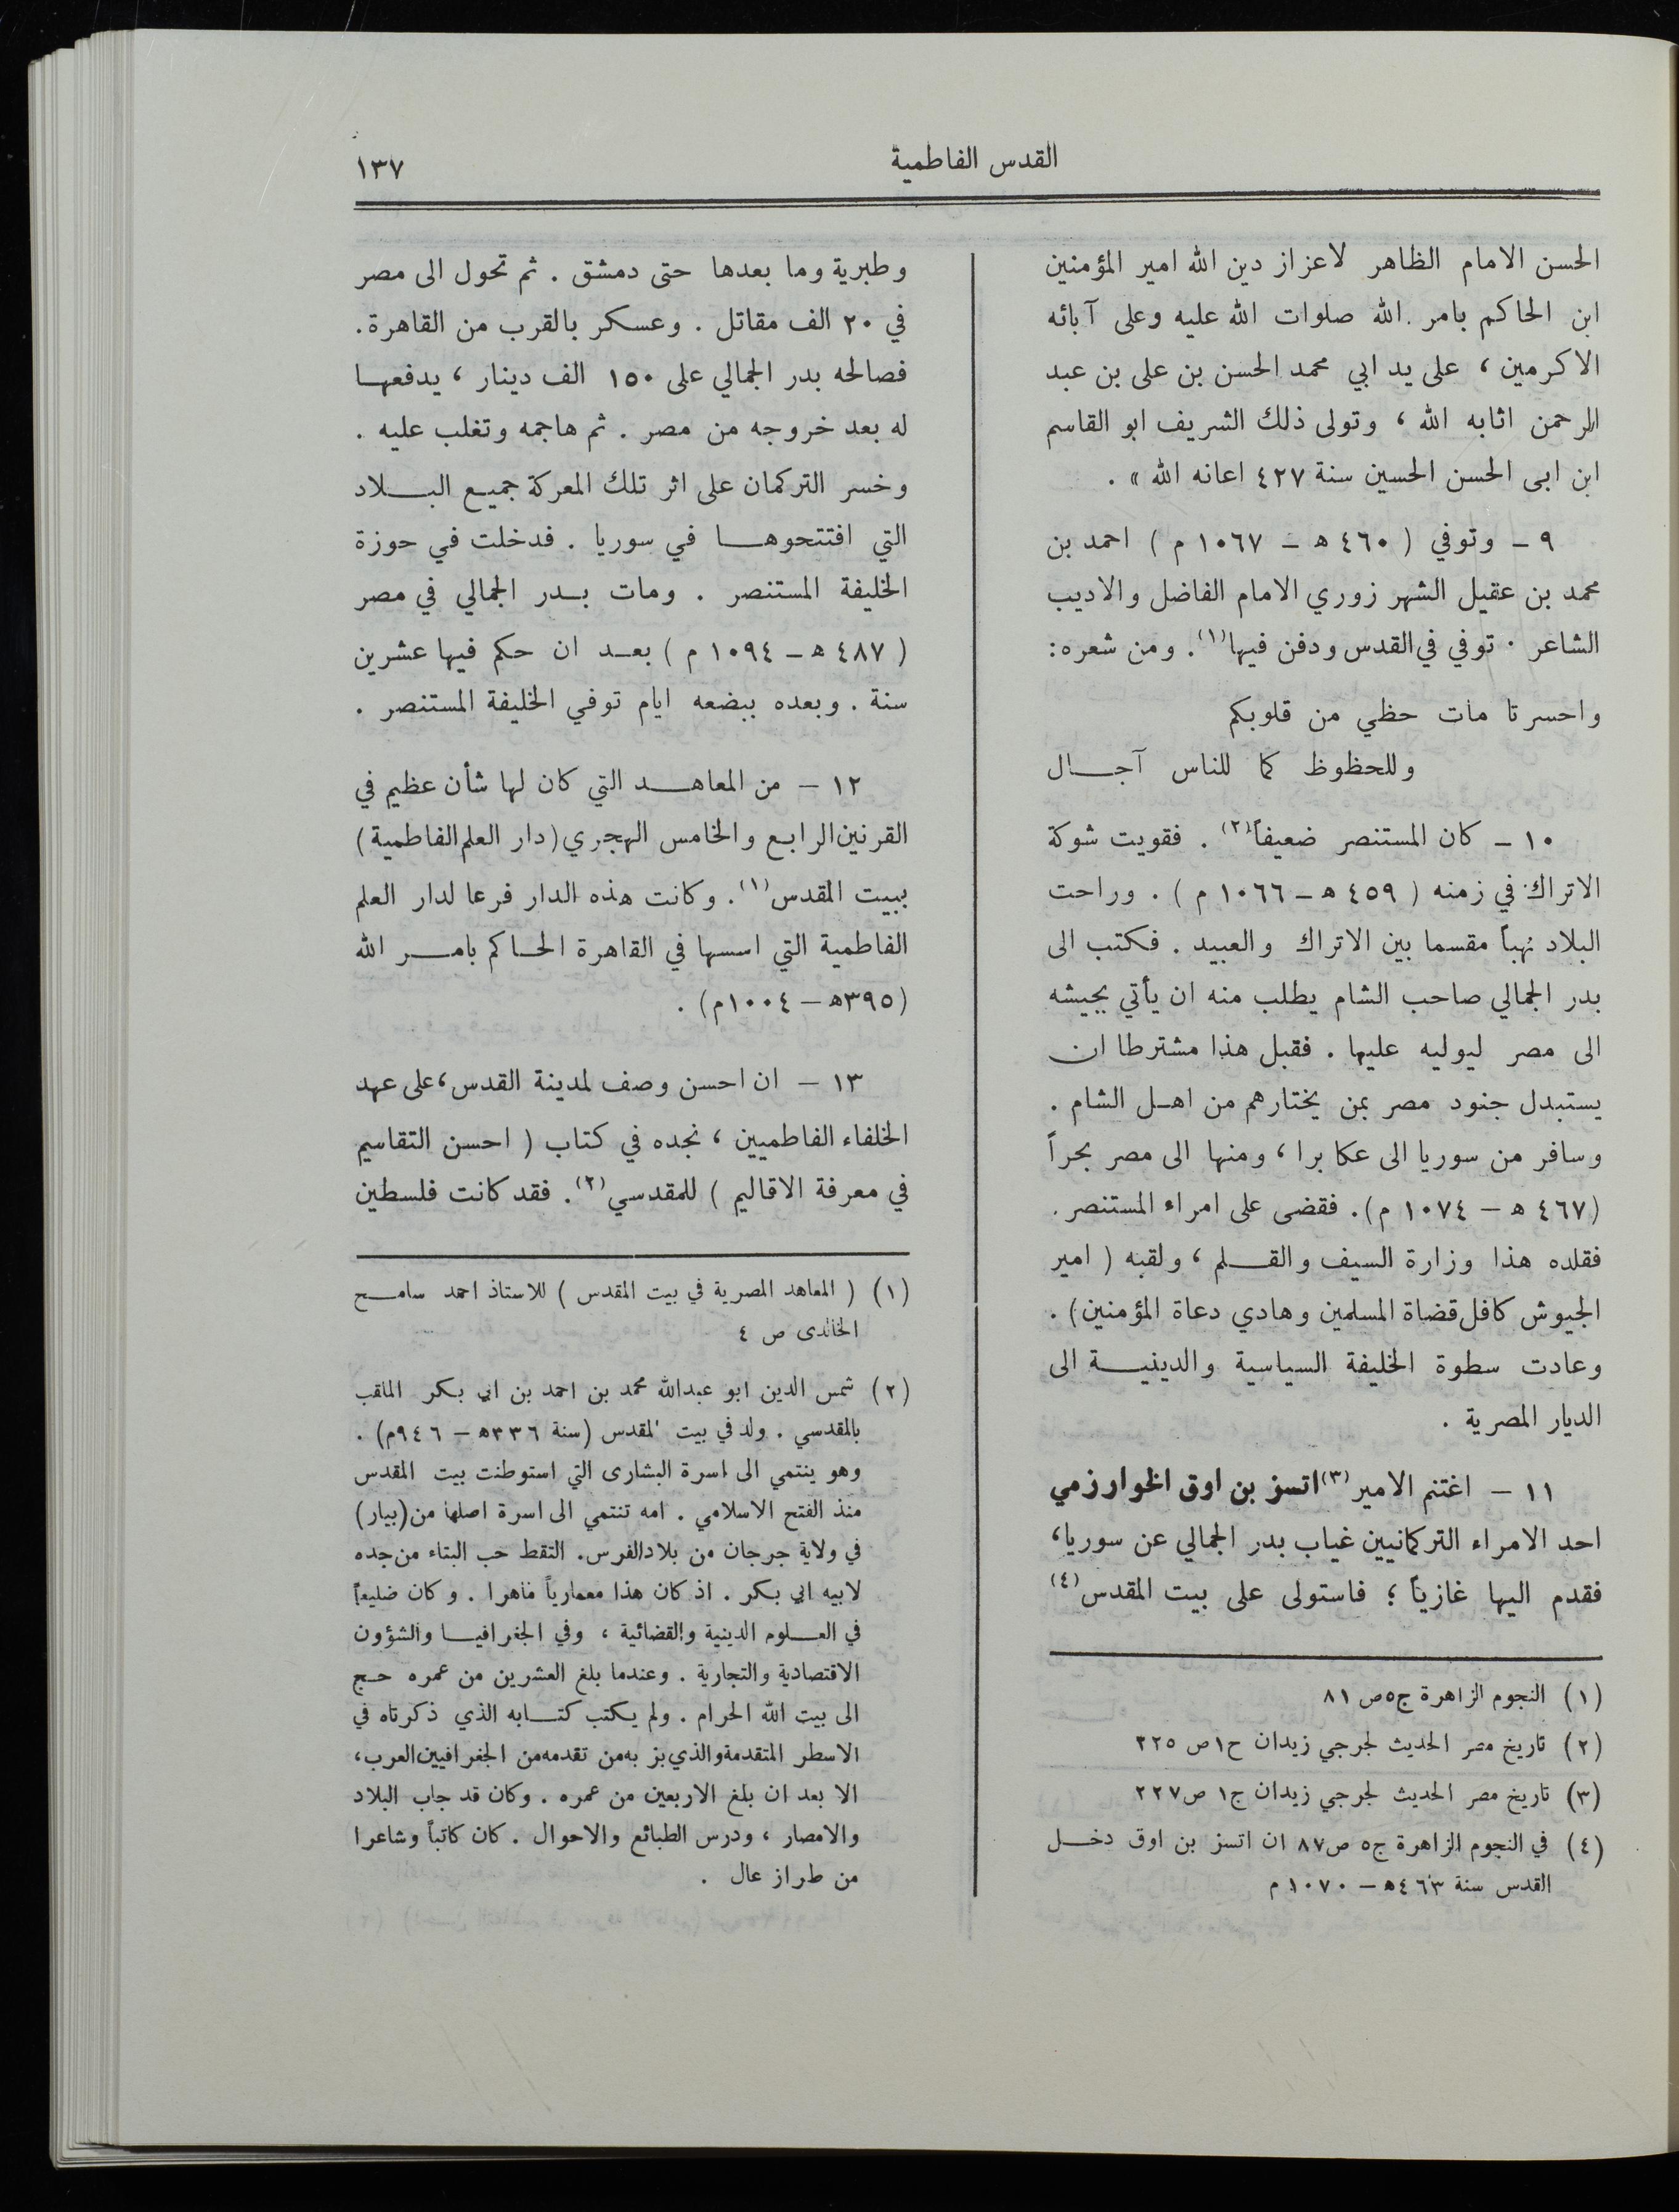 القدس الفاطمية
١٣٧
الحسن الامام الظاهر لاعزاز دين الله امير المؤمنين
ابن الحاكم بامر الله صلوات الله عليه وعلى آبائه
الاكرمين ، على يد ابي محمد الحسن بن على بن عبد
الرحمن اثابه الله ، وتولى ذلك الشريف ابو القاسم
ابن ابى الحسن الحسين سنة ٤٢٧ اعانه الله » .
٩ ـ وتوفي ( ٤٦٠ ه ـ ١٠٦٧ م ) احمد بن
محمد بن عقيل الشهر زوري الامام الفاضل والاديب
الشاعر . توفي في القدس ودفن فيها (١) . ومن شعره :
واحسرتا مات حظي من قلوبكم
وللحظوظ كما للناس آجـال
١٠ ـ كان المستنصر ضعيفاً (٢) . فقويت شوكة
الاتراك في زمنه ( ٤٥٩ ه ـ ١٠٦٦ م ) . وراحت
البلاد نهباً مقسما بين الاتراك والعبيد . فكتب الى
بدر الجمالي صاحب الشام يطلب منه ان يأتي بجيشه
الى مصر ليوليه عليها . فقبل هذا مشترطا ان
يستبدل جنود مصر بمن يختارهم من اهـل الشام .
وسافر من سوريا الى عكا برا ، ومنها الى مصر بحراً
(٤٦٧ ه – ١٠٧٤ م) . فقضى على امراء المستنصر .
فقلده هذا وزارة السيف والقـلم ، ولقبه ( امير
الجيوش كافل قضاة المسلمين وهادي دعاة المؤمنين) .
وعادت سطوة الخليفة السياسية والدينيـة الى
الديار المصرية .
١١ – اغتنم الامير (٣) اتسز بن اوق الخوارزمي
احد الامراء التركمانيين غياب بدر الجمالي عن سوريا ،
فقدم اليها غازياً ؛ فاستولى على بيت المقدس (٤)
(١) النجوم الزاهرة ج٥ص ٨١
(٢) تاريخ مصر الحديث لجرجي زيدان ج١ص ٢٢٥
(٣) تاريخ مصر الحديث لجرجي زيدان ج١ ص٢٢٧
(٤) في النجوم الزاهرة ج٥ ص٨٧ ان اتسز بن اوق دخـل
القدس سنة ٤٦٣ه – ١٠٧٠ م
وطبرية وما بعدها حتى دمشق . ثم تحول الى مصر
في ٢٠ الف مقاتل . وعسكر بالقرب من القاهرة .
فصالحه بدر الجمالي على ١٥٠ الف دينار ، يدفعهـا
له بعد خروجه من مصر . ثم هاجمه وتغلب عليه .
وخسر التركمان على اثر تلك المعركة جميع البـلاد
التي افتتحوهـا في سوريا . فدخلت في حوزة
الخليفة المستنصر . ومات بـدر الجمالي في مصر
( ٤٨٧ ه ـ ١٠٩٤ م ) بعـد ان حكم فيها عشرين
سنة . وبعده ببضعه ايام توفي الخليفة المستنصر .
١٢ – من المعاهـد التي كان لها شأن عظيم في
القرنين الرابع والخامس الهجري (دار العلم الفاطمية)
ببيت المقدس (١) . وكانت هذه الدار فرعا لدار العلم
الفاطمية التي اسسها في القاهرة الحـاكم بامـر الله
(٣٩٥ه – ١٠٠٤م) .
١٣ – ان احسن وصف لمدينة القدس ، على عهد
الخلفاء الفاطميين ، نجده في كتاب ( احسن التقاسيم
في معرفة الاقاليم ) للمقدسي (٢) . فقد كانت فلسطين
(١) ( المعاهد المصرية في بيت المقدس ) للاستاذ احمد سامـح
الخالدى ص ٤
(٢) شمس الدين ابو عبدالله محمد بن احمد بن ابي بكر الملقب
بالمقدسي . ولد في بيت المقدس (سنة ٣٣٦ه – ٩٤٦م) .
وهو ينتمي الى اسرة البشارى التي استوطنت بيت المقدس
منذ الفتح الاسلامي . امه تنتمي الى اسرة اصلها من (بيار)
في ولاية جرجان من بلاد الفرس . التقط حب البناء من جده
لابيه ابي بكر . اذ كان هذا معمارياً ماهرا . وكان ضليعاً
في العـلوم الدينية والقضائية ، وفي الجغرافيـا والشؤون
الاقتصادية والتجارية . وعندما بلغ العشرين من عمره حـج
الى بيت الله الحرام . ولم يكتب كتـابه الذي ذكرناه في
الاسطر المتقدمة والذي بز به من تقدمه من الجغرافيين العرب ،
الا بعد ان بلغ الاربعين من عمره . وكان قد جاب البلاد
والامصار ، ودرس الطبائع والاحوال . كان كاتباً وشاعرا
من طراز عال .